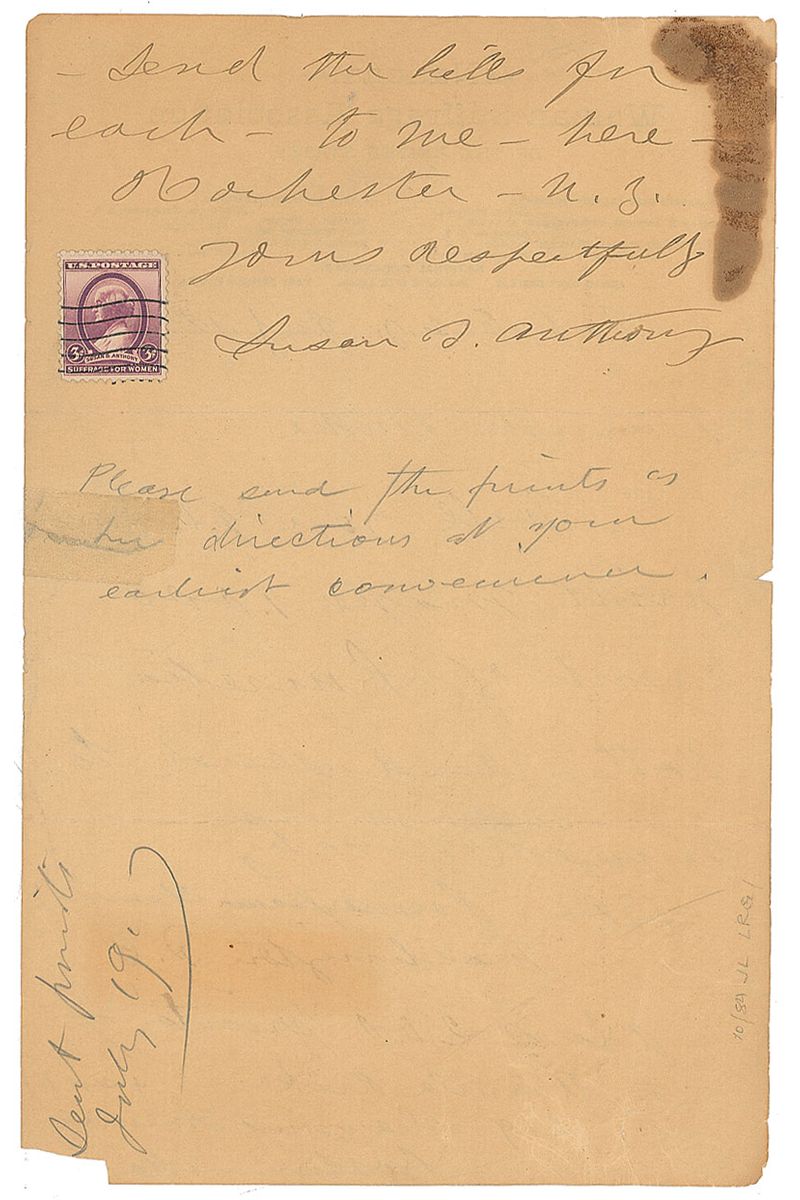 - Send the bills for
each - to me - here -
Rochester - N. Y.
Yours respectfully
Susan B. Anthony
U.S. POSTAGE
3¢ 3¢
SUSAN B. ANTHONY
SUFFRAGE FOR WOMEN
Please send the prints as
per directions at your
earliest convenience.
Sent prints
July 19.
10/84 JL LRG1